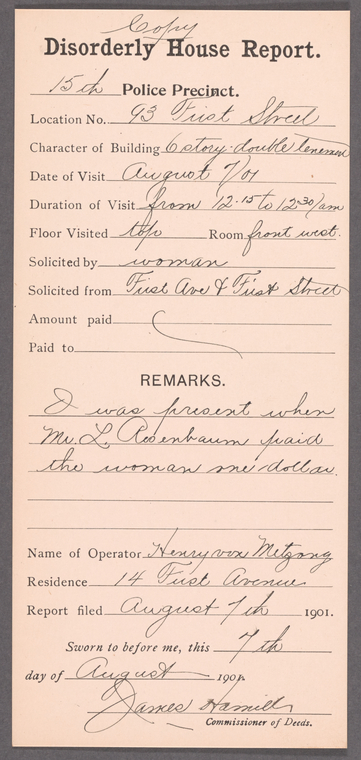 Copy
Disorderly House Report.
15th Police Precinct.
Location No. 93 First Street
Character of Building 6 story double tenement
Date of Visit August 7/01
Duration of Visit from 12.15 to 12.30/am
Floor Visited top Room front west.
Solicited by woman
Solicited from First Ave & First Street
Amount paid
Paid to
REMARKS.
I was present when
Mr. L. Rosenbaum paid
the woman one dollar.
Name of Operator Henry von Metzong
Residence 14 First Avenue
Report filed August 7th 1901.
Sworn to before me, this 7th
day of August 1901.
James Hamill
Commissioner of Deeds.